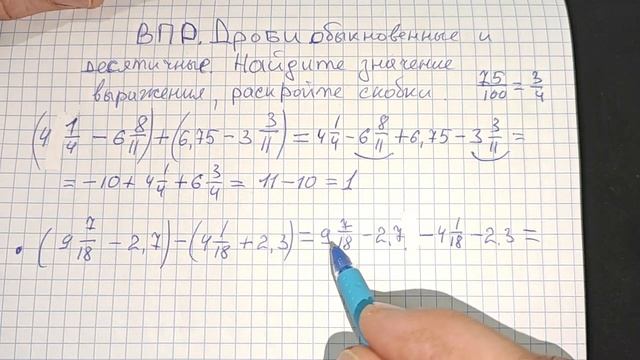 ВПР. Дроби обыкновенные и
десятичные. Найдите значение
выражения, раскройте скобки. 75/100 = 3/4
(4 1/4 - 6 8/11) + (6,75 - 3 3/11) = 4 1/4 - 6 8/11 + 6,75 - 3 3/11 =
= -10 + 4 1/4 + 6 3/4 = 11 - 10 = 1
(9 7/18 - 2,7) - (4 1/18 + 2,3) = 9 7/18 - 2,7 - 4 1/18 - 2,3 =